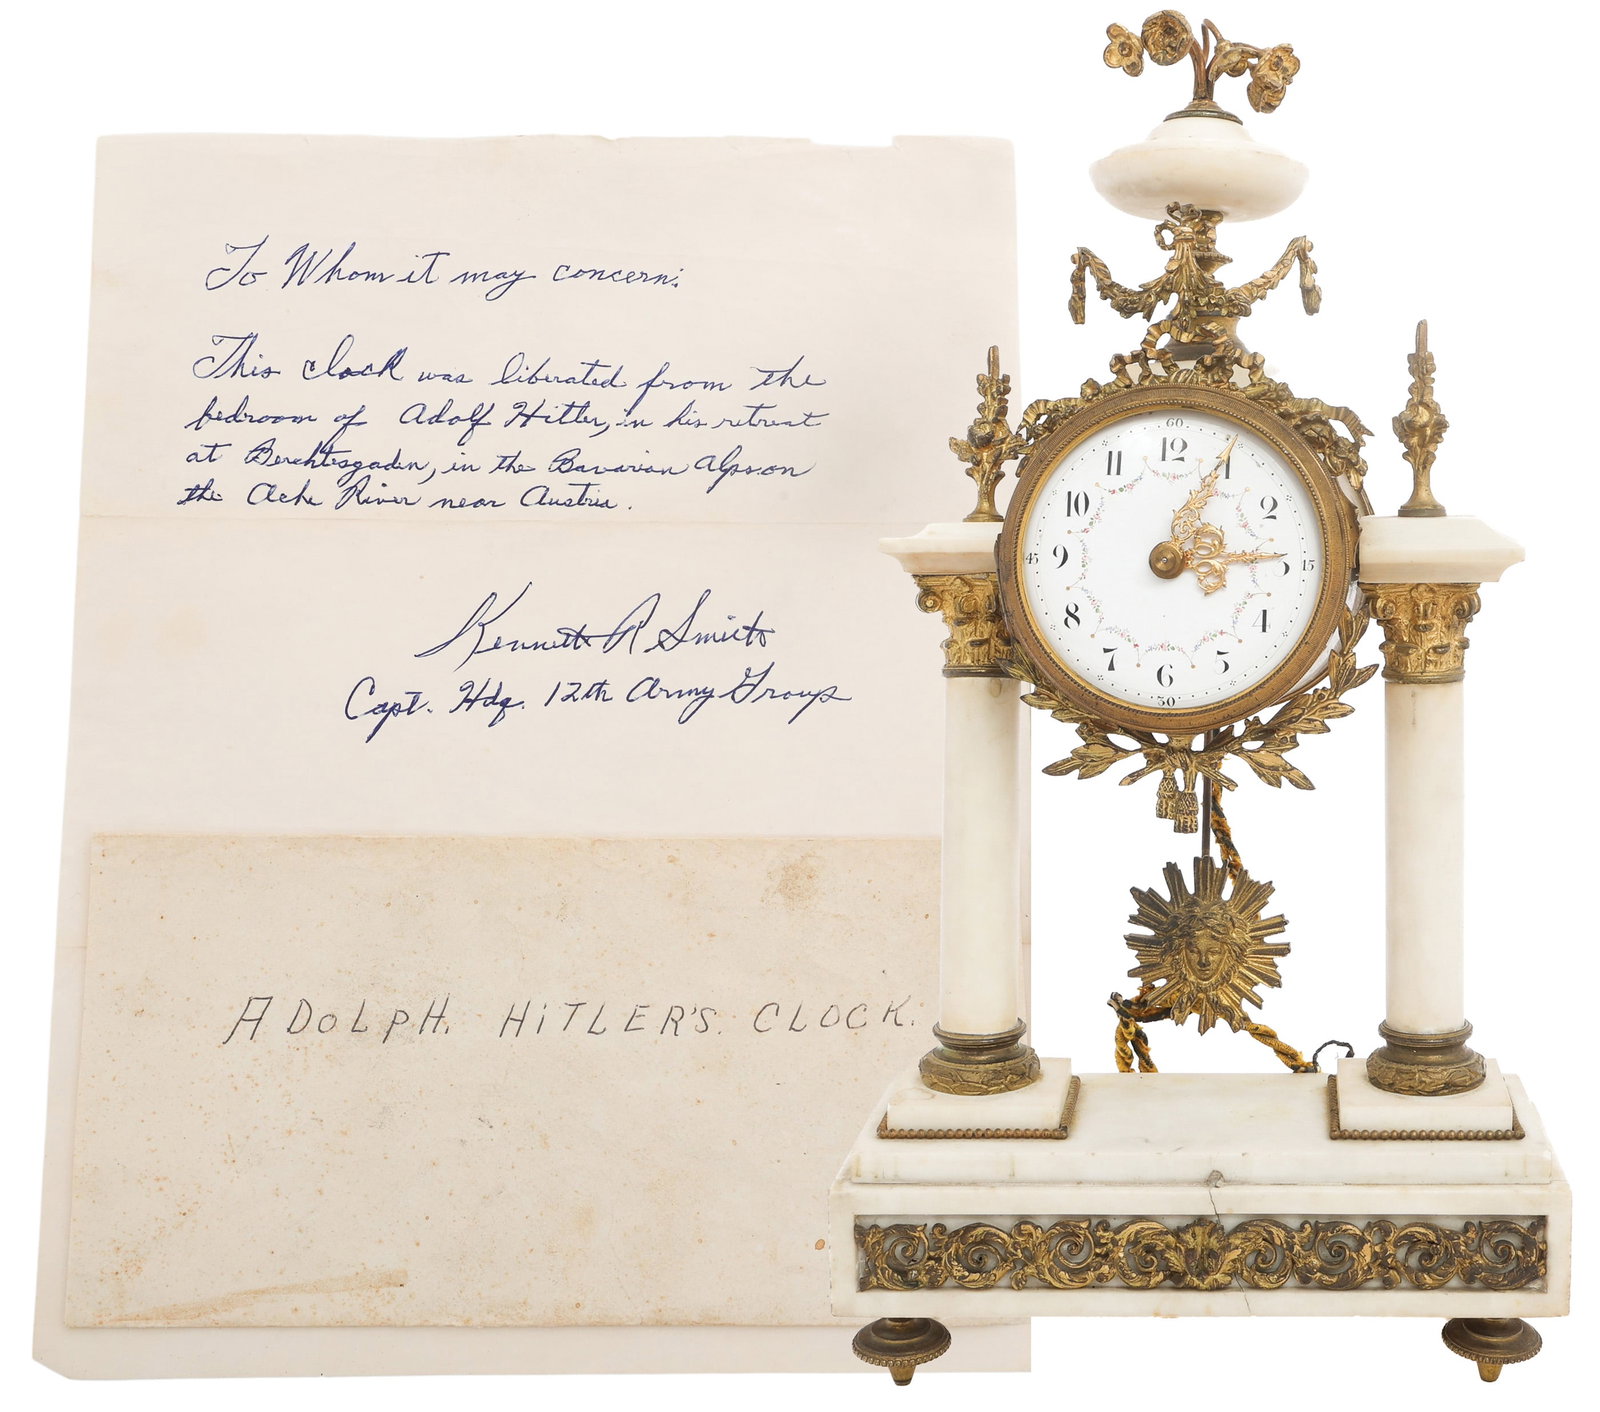 To Whom it may concern:
This clock was liberated from the
bedroom of Adolf Hitler, in his retreat
at Berchtesgaden, in the Bavarian Alps on
the Ache River near Austria.
Kenneth R Smith
Capt. Hdq. 12th Army Group
ADOLPH. HiTLER'S. CLOCK.
60
12
11
1
10
2
45
9
3
15
8
4
7
5
6
30